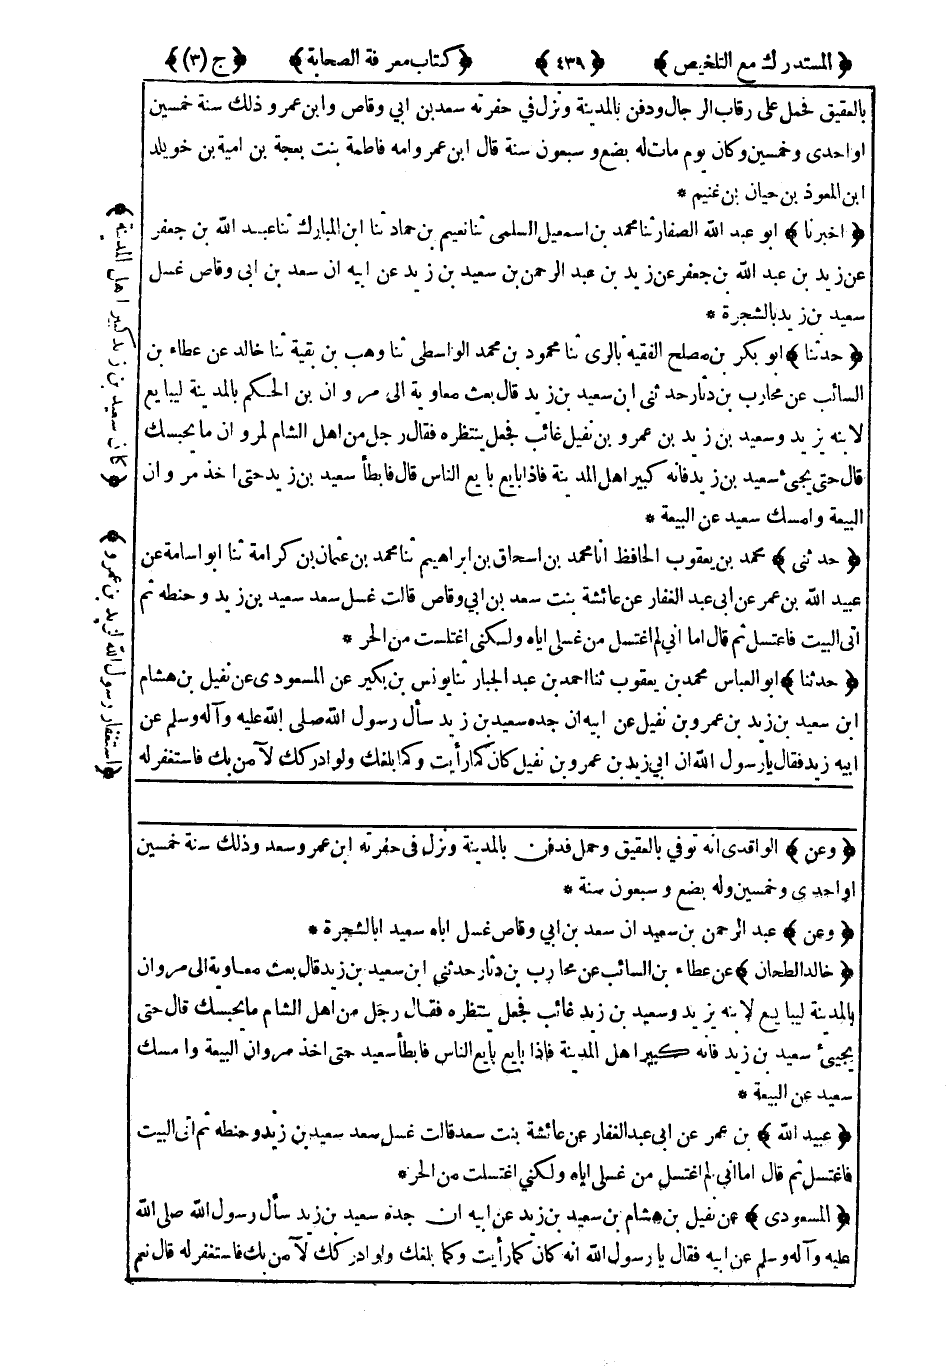 ﴿ المستدرك مع التلخيص ﴾ ﴿ ٤٣٩ ﴾ ﴿ كتاب معرفة الصحابة ﴾ ﴿ ج (٣) ﴾
بالعقيق فحمل على رقاب الرجال ودفن بالمدينة ونزل في حفرته سعد بن ابي وقاص وابن عمر وذلك سنة خمسين
او احدى وخمسين وكان يوم مات له بضع و سبعون سنة قال ابن عمر وامه فاطمة بنت بعجة بن امية بن خويلد
ابن المعوذ بن حيان بن غنيم *
﴿ اخبرنا ﴾ ابو عبد الله الصفار ثنا محمد بن اسمعيل السلمى ثنا نعيم بن حماد ثنا ابن المبارك ثنا عبد الله بن جعفر
عن زيد بن عبد الله بن جعفر عن زيد بن عبد الرحمن بن سعيد بن زيد عن ابيه ان سعد بن ابى وقاص غسل
سعيد بن زيد بالشجرة *
﴿ حدثنا ﴾ ابو بكر بن مصلح الفقيه بالرى ثنا محمود بن محمد الواسطى ثنا وهب بن بقية ثنا خالد عن عطاء بن
السائب عن محارب بن دثار حدثنى ابن سعيد بن زيد قال بعث معاوية الى مروان بن الحكم بالمدينة ليبايع
لابنه يزيد وسعيد بن زيد بن عمرو بن نفيل غائب فجعل ينتظره فقال رجل من اهل الشام لمروان ما يحبسك
قال حتى يجىء سعيد بن زيد فانه كبير اهل المدينة فاذا بايع بايع الناس قال فابطأ سعيد بن زيد حتى اخذ مروان
البيعة وامسك سعيد عن البيعة *
﴿ حدثنى ﴾ محمد بن يعقوب الحافظ انا محمد بن اسحاق بن ابراهيم ثنا محمد بن عثمان بن كرامة ثنا ابو اسامة عن
عبيد الله بن عمر عن ابى عبد الغفار عن عائشة بنت سعد بن ابي وقاص قالت غسل سعد سعيد بن زيد وحنطه ثم
اتى البيت فاغتسل ثم قال اما انى لم اغتسل من غسلى اياه ولكنى اغتسلت من الحر *
﴿ حدثنا ﴾ ابو العباس محمد بن يعقوب ثنا احمد بن عبد الجبار ثنا يونس بن بكير عن المسعودى عن نفيل بن هشام
ابن سعيد بن زيد بن عمرو بن نفيل عن ابيه ان جده سعيد بن زيد سأل رسول الله صلى الله عليه وآله وسلم عن
ابيه زيد فقال يا رسول الله ان ابي زيد بن عمرو بن نفيل كان كما رأيت وكما بلغك ولو ادركك لآمن بك فاستغفر له
﴿ كان سعيد بن زيد كبير اهل المدينة ﴾
﴿ استغفار رسول الله لزيد بن عمرو ﴾
﴿ وعن ﴾ الواقدى انه توفي بالعقيق وحمل فدفن بالمدينة ونزل فى حفرته ابن عمر وسعد وذلك سنة خمسين
او احدى وخمسين وله بضع وسبعون سنة *
﴿ وعن ﴾ عبد الرحمن بن سعيد ان سعد بن ابي وقاص غسل اباه سعيد ابالشجرة *
﴿ خالد الطحان ﴾ عن عطاء بن السائب عن محارب بن دثار حدثني ابن سعيد بن زيد قال بعث معاوية الى مروان
بالمدينة ليبايع لابنه يزيد وسعيد بن زيد غائب فجعل ينتظره فقال رجل من اهل الشام ما يحبسك قال حتى
يجيىء سعيد بن زيد فانه كبير اهل المدينة فاذا بايع بايع الناس فابطأ سعيد حتى اخذ مروان البيعة وامسك
سعيد عن البيعة *
﴿ عبيد الله ﴾ بن عمر عن ابى عبد الغفار عن عائشة بنت سعد قالت غسل سعد سعيد بن زيد وحنطه ثم اتى البيت
فاغتسل ثم قال اما أنى لم اغتسل من غسلى اياه ولكني اغتسلت من الحر *
﴿ المسعودى ﴾ عن نفيل بن هشام بن سعيد بن زيد عن ابيه ان جده سعيد بن زيد سأل رسول الله صلى الله
عليه وآله وسلم عن ابيه فقال يا رسول الله انه كان كما رأيت وكما بلغك ولو ادركك لآمن بك فاستغفر له قال نعم